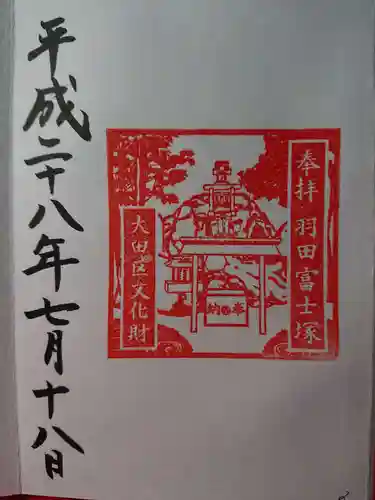 奉拝 羽田富士塚
大田区文化財
奉納
平成二十八年七月十八日